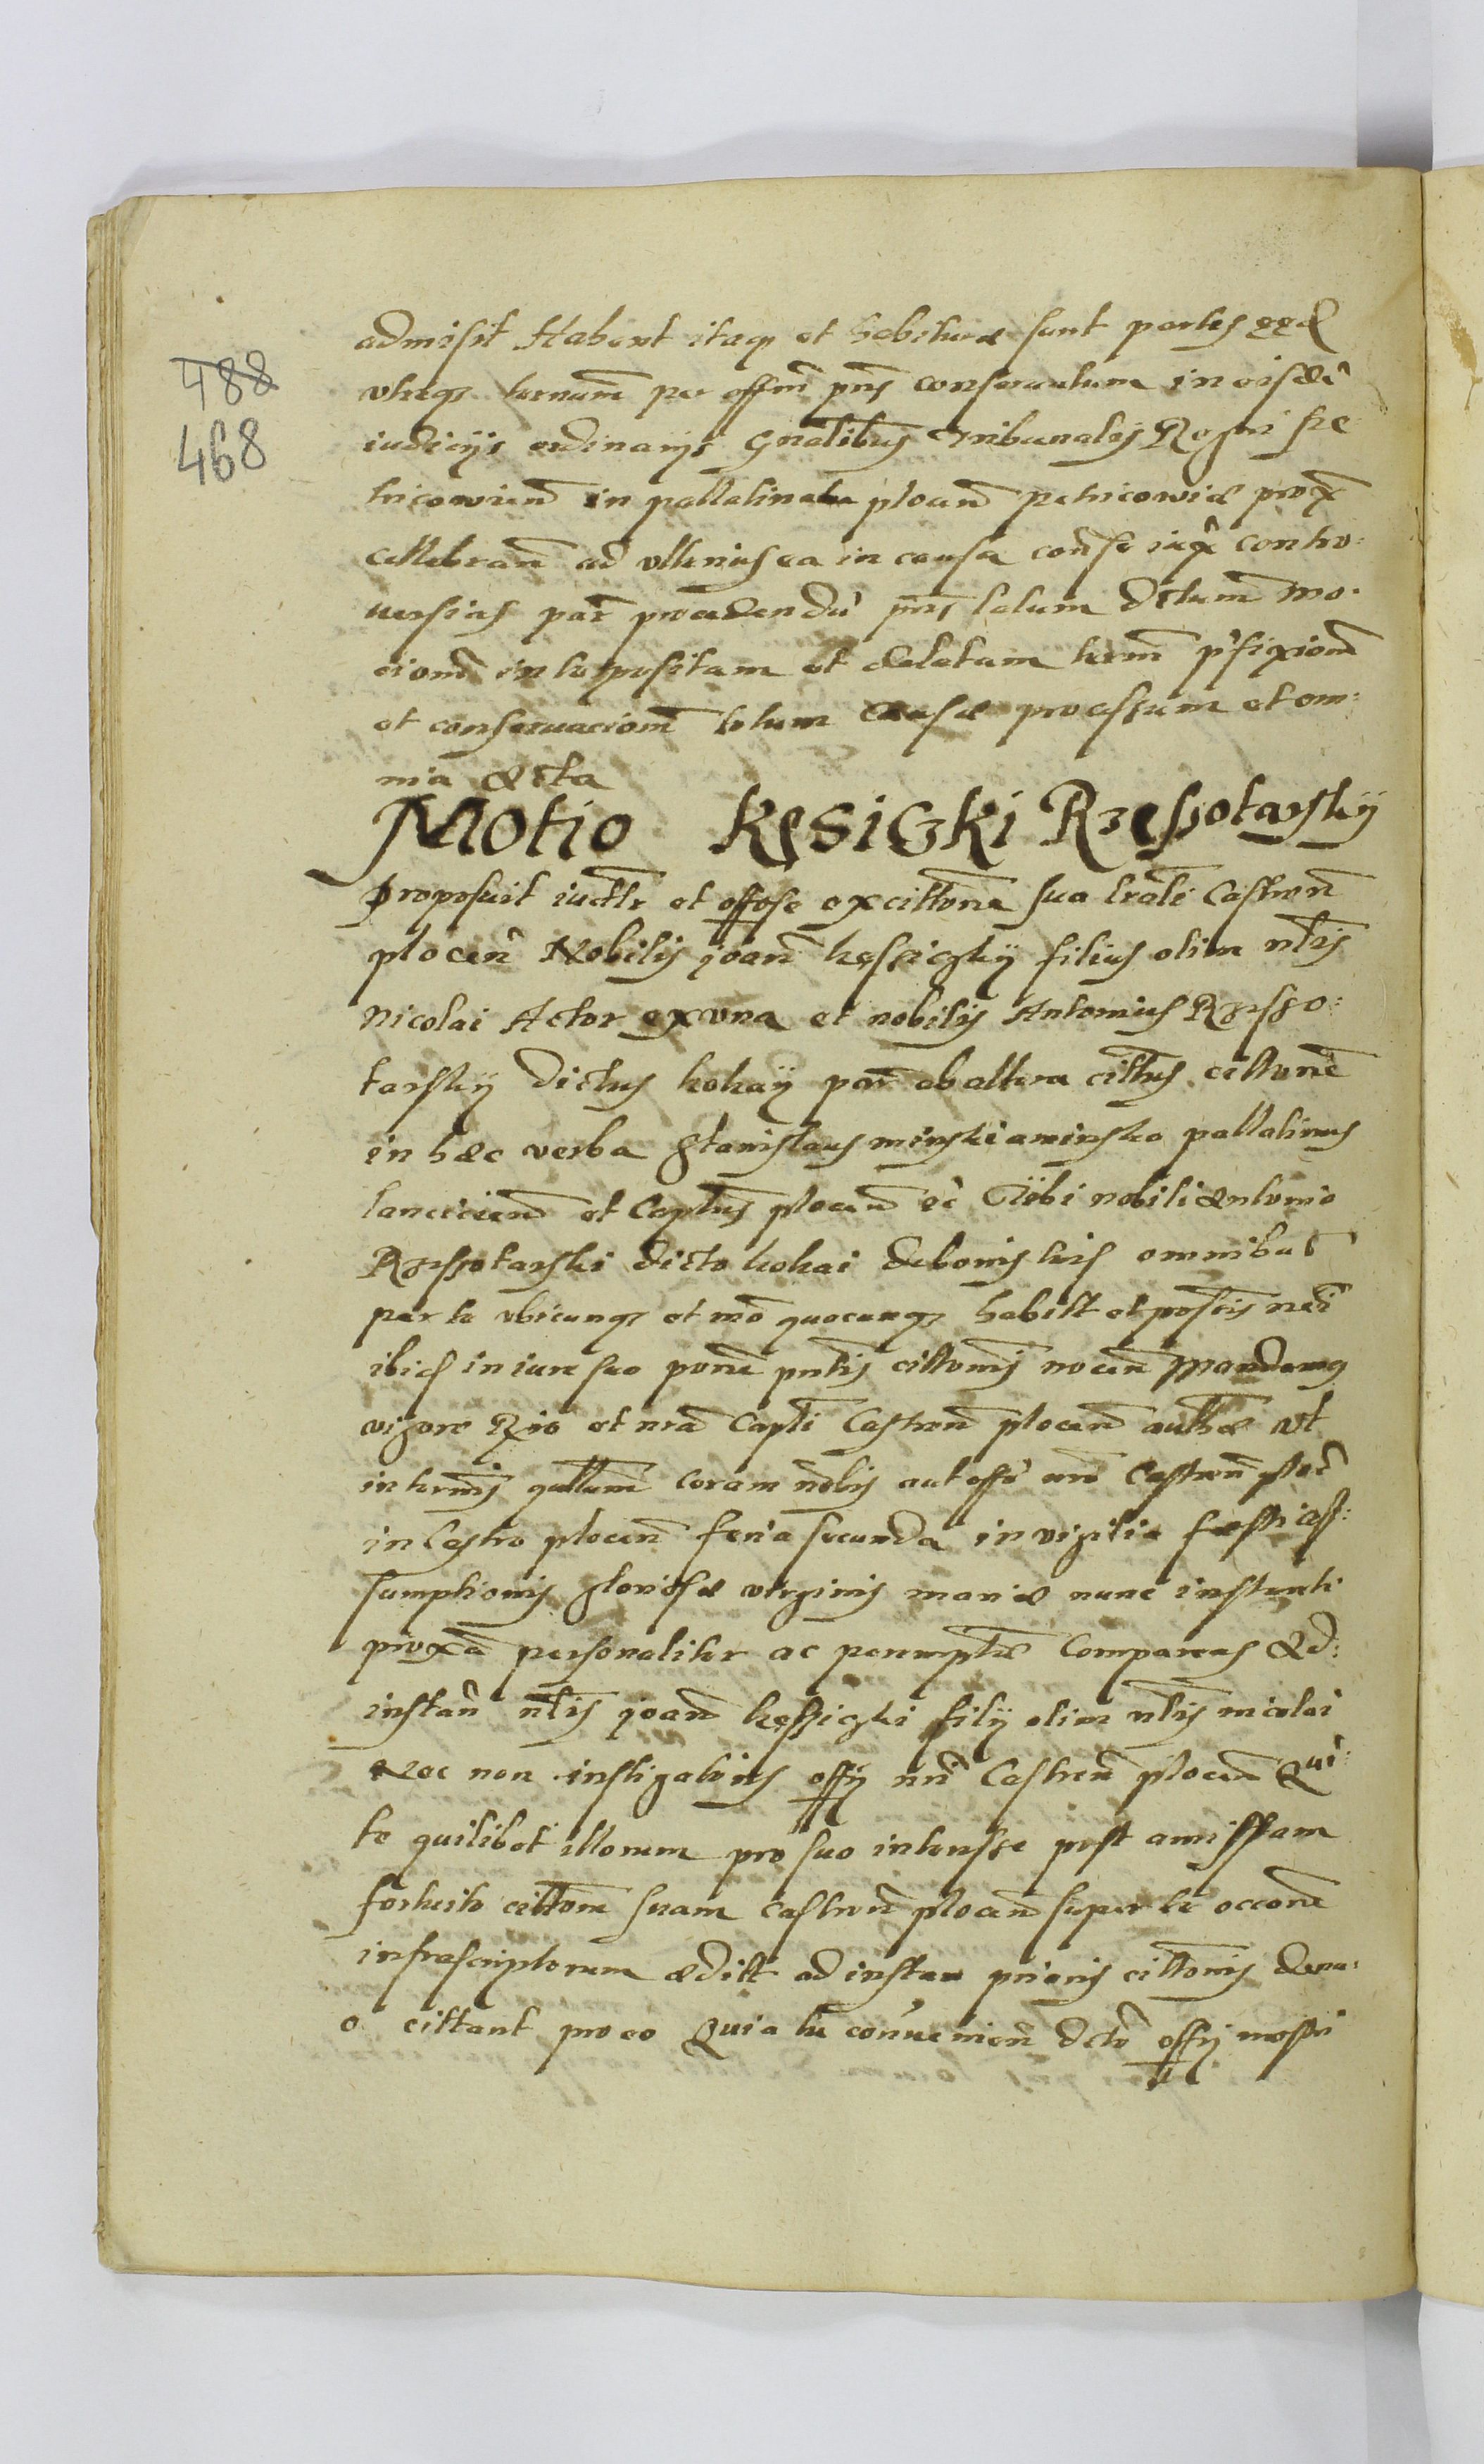 488
468
admisit Habent itaq et habiturae sunt partes
utraq3 termum per offm pns conseruatum in eisdē
iudicijs ordinarijs Gnalibus Tribunalis Regni Pe
tricouien in pallatinatu plocen petricowiae prox
cellebran ad ulterius ea in causa
uersias par procedendū pns latum Dctum mo:
cionē interpositam et delatam termi p̄fixionē
et conseruacionē totum causae processum et om:
nia acta
Motio Kęsicki Rzessotarskij
Proposuit iudtr et offose ex cittone sua lrali Castren
plocen Nobilis joan kęssiczkij filius olim nlis
Nicolai Actor ex una et nobilis Antonius Rzesso:
tarskij dictus kokaij par ab altera cittus cittone
in haec verba Stanislaus minski a minsko pallatinus
lancicien et Captus plocen ec Tibi nobili Antonio
Rzessotarski dicto kokai de bonis tuis omnibus
per te ubicunq3 et mō quocunq3 habitt et possis
in iure suo pntis cittonis nocen Mandamq
vigore Rio et nra Capli Castren plocen autho Ut
in termis coram nobis aut offo nro Castren ploc
in Castro plocen feria secunda in vigilia festi as:
sumptionis gloriosae virginis mariae nunc instanti
proxa personaliter ac peremptē Compareas Ad:
instan nlis joan kęssiczki filij olim nlis nicolai
Nec non instigatoris offij nri Castren plocen Qui:
te quilibet illorum pro suo interesse post amissam
fortuito cittone suam castren plocen super te occone
infrascriptorum aeditt ad instan prioris cittonis denu:
o cittant pro eo Quia tu conuenien dcto offij nostri